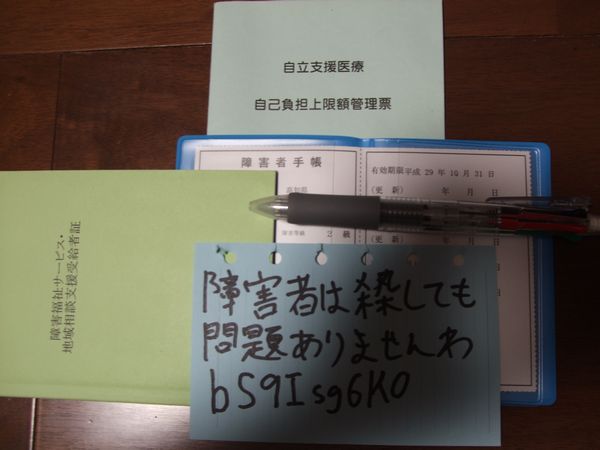 自立支援医療
自己負担上限額管理票
障害者手帳
障害等級 2 級
有効期限 平成 29 年 10 月 31 日
(更 新) 年 月 日
(更 新) 年 月 日
障害福祉サービス・
地域相談支援受給者証
障害者は殺しても
問題ありませんわ
bS9Isg6K0